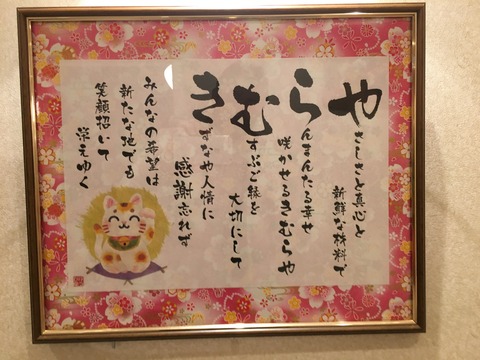 きむらや
さしさと真心と
新鮮な材料で
んまんたる幸せ
咲かせるきむらや
すぶご縁を
大切にして
ずなや人情に
感謝忘れず
みんなの希望は
新たな地でも
笑顔招いて
えゆく